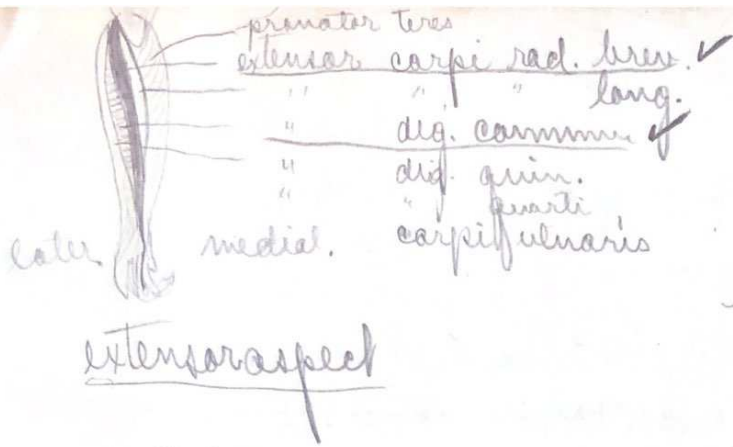 pronator teres
extensor carpi rad. brev. ✓
" " " long.
" dig. commun ✓
" dig. quin.
" " quarti
later. medial. carpi ulnaris
extensor aspect